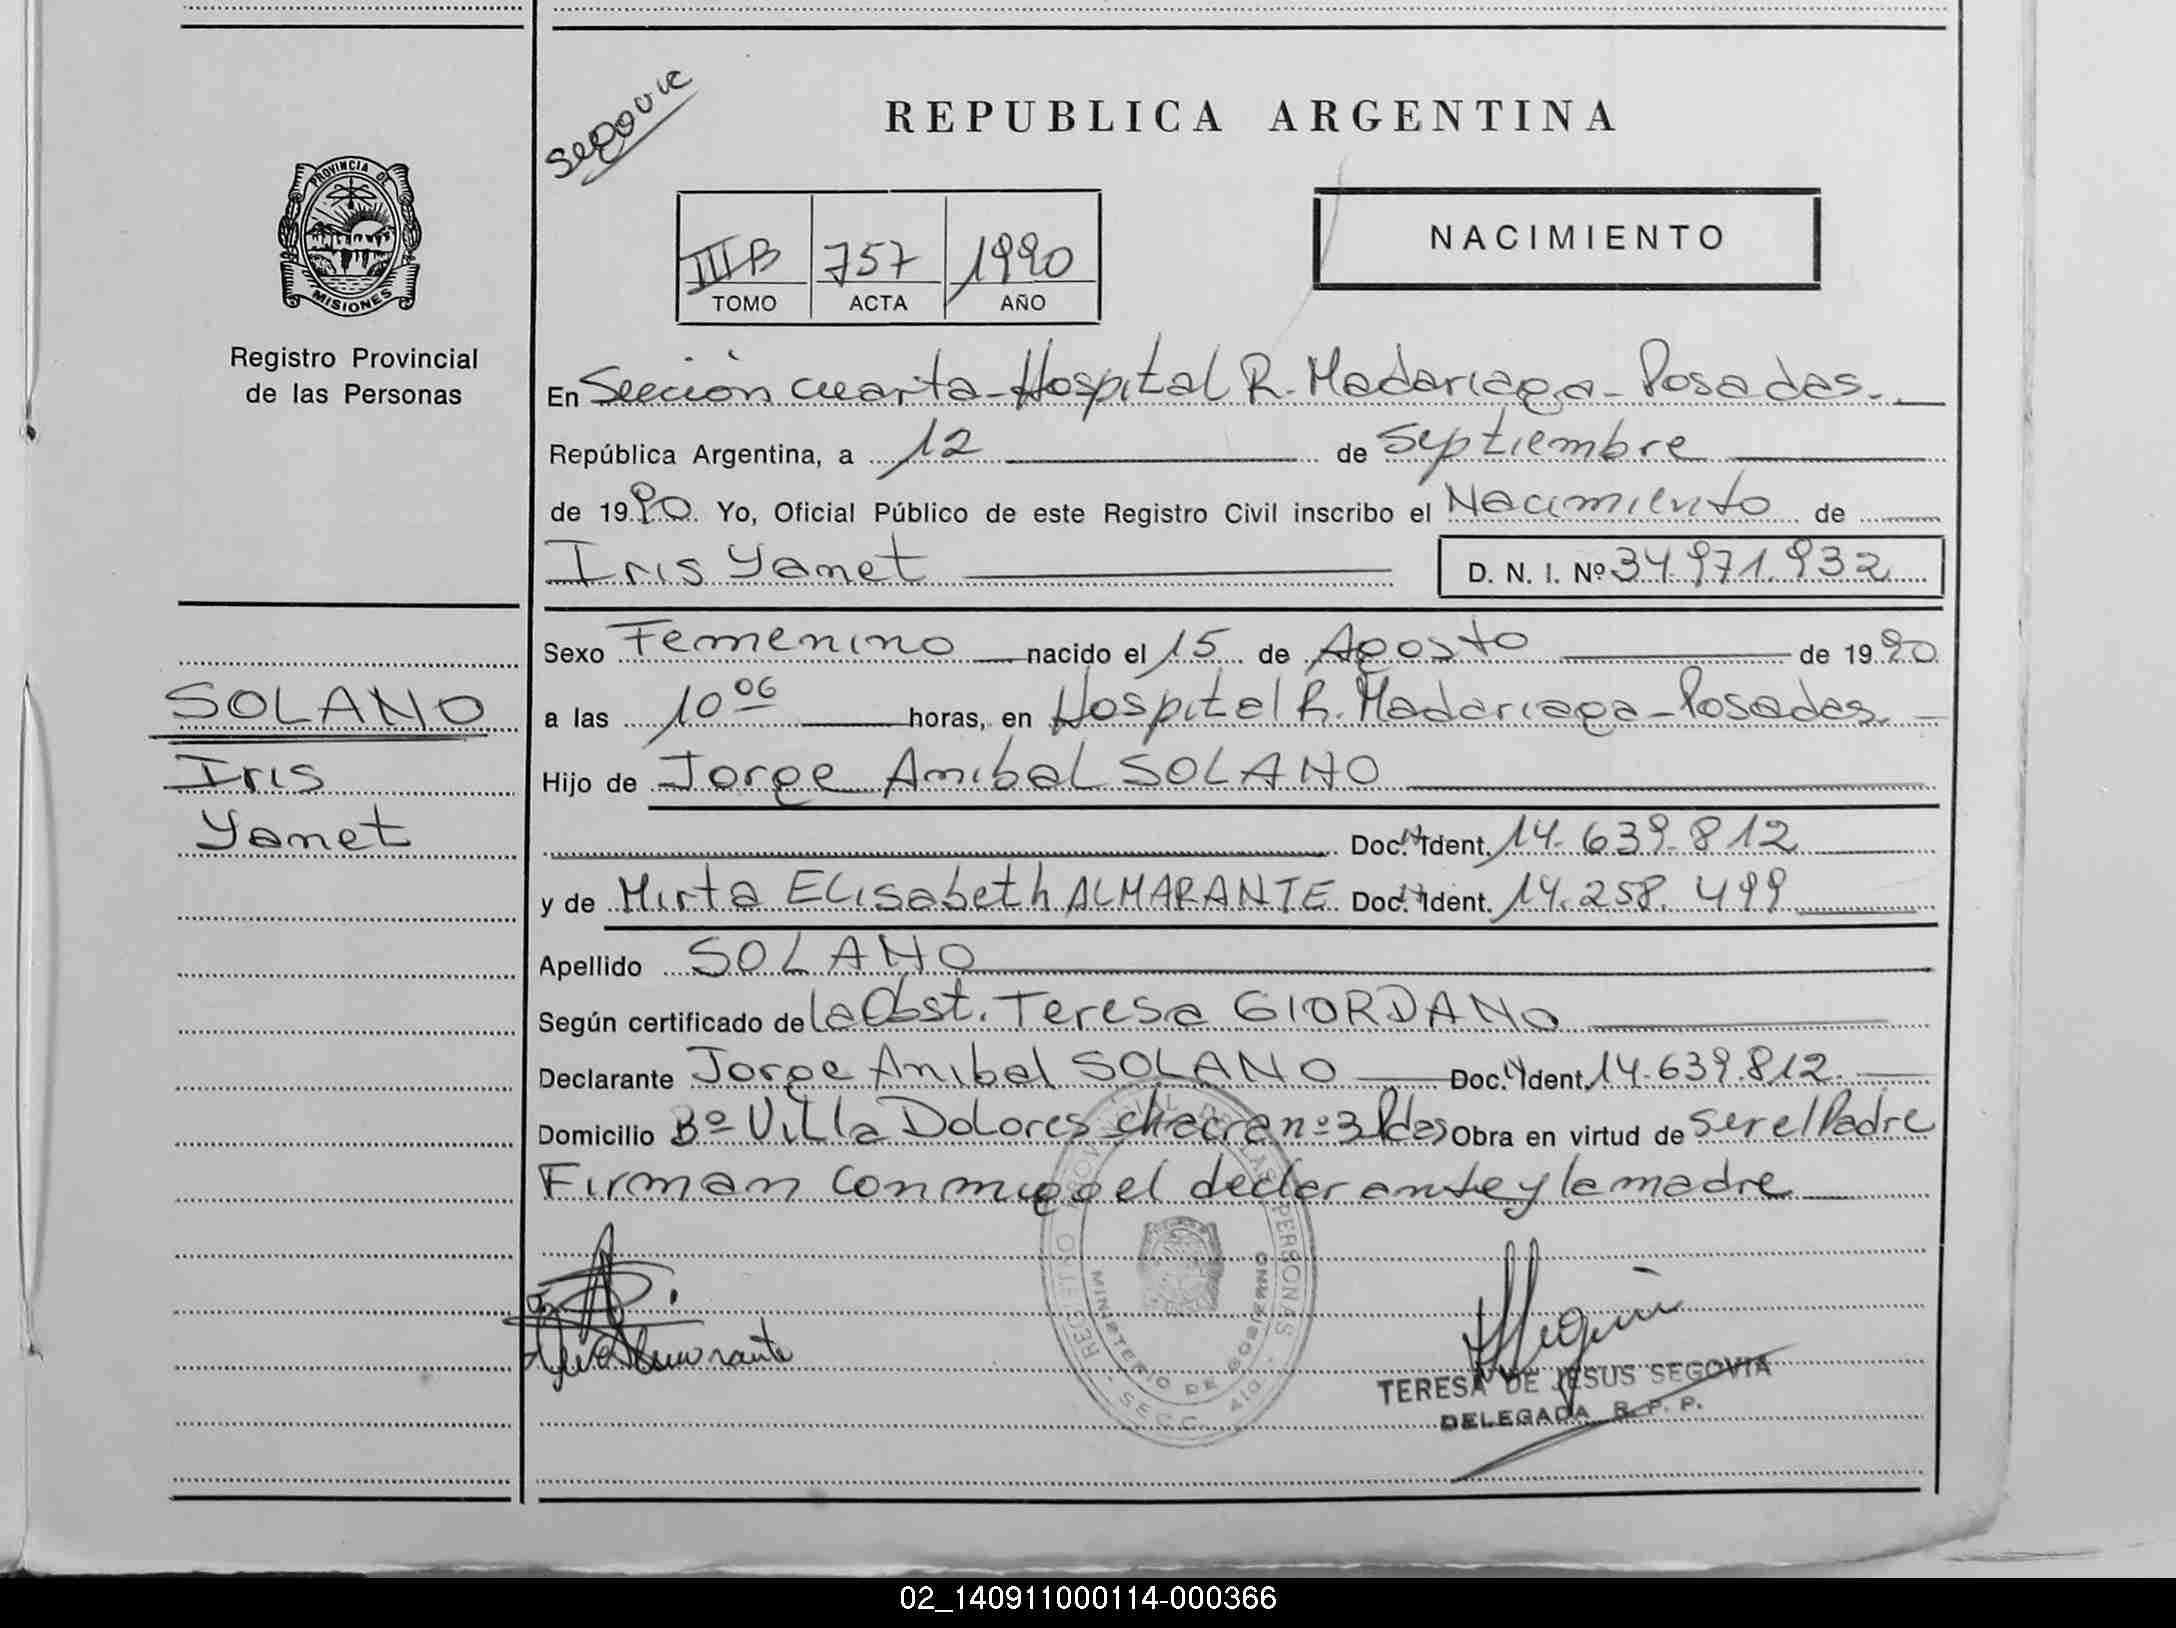 Segovia
REPUBLICA ARGENTINA
PROVINCIA DE
MISIONES
Registro Provincial
de las Personas
III B 757 1990
TOMO ACTA AÑO
NACIMIENTO
En Sección cuarta - Hospital R. Madariaga - Posadas.
República Argentina, a 12 de Septiembre
de 1990 Yo, Oficial Público de este Registro Civil inscribo el Nacimiento de
Iris Yanet D. N. I. Nº 34.971.932
SOLANO
Iris
Yanet
Sexo Femenino nacido el 15 de Agosto de 1990
a las 10 06 horas, en Hospital R. Madariaga - Posadas.
Hijo de Jorge Anibal SOLANO
Doc. Ident. 14.639.812
y de Mirta ELisabeth ALMARANTE Doc. Ident. 14.258.499
Apellido SOLANO
Según certificado de la Obst. Teresa GIORDANO
Declarante Jorge Anibal SOLANO Doc. Ident. 14.639.812
Domicilio Bº Villa Dolores chacra nº 3 Pdas Obra en virtud de ser el Padre
Firman conmigo el declarante y la madre
MINISTERIO DE GOBIERNO
TERESA DE JESUS SEGOVIA
DELEGADA R. P. P.
02_140911000114-000366